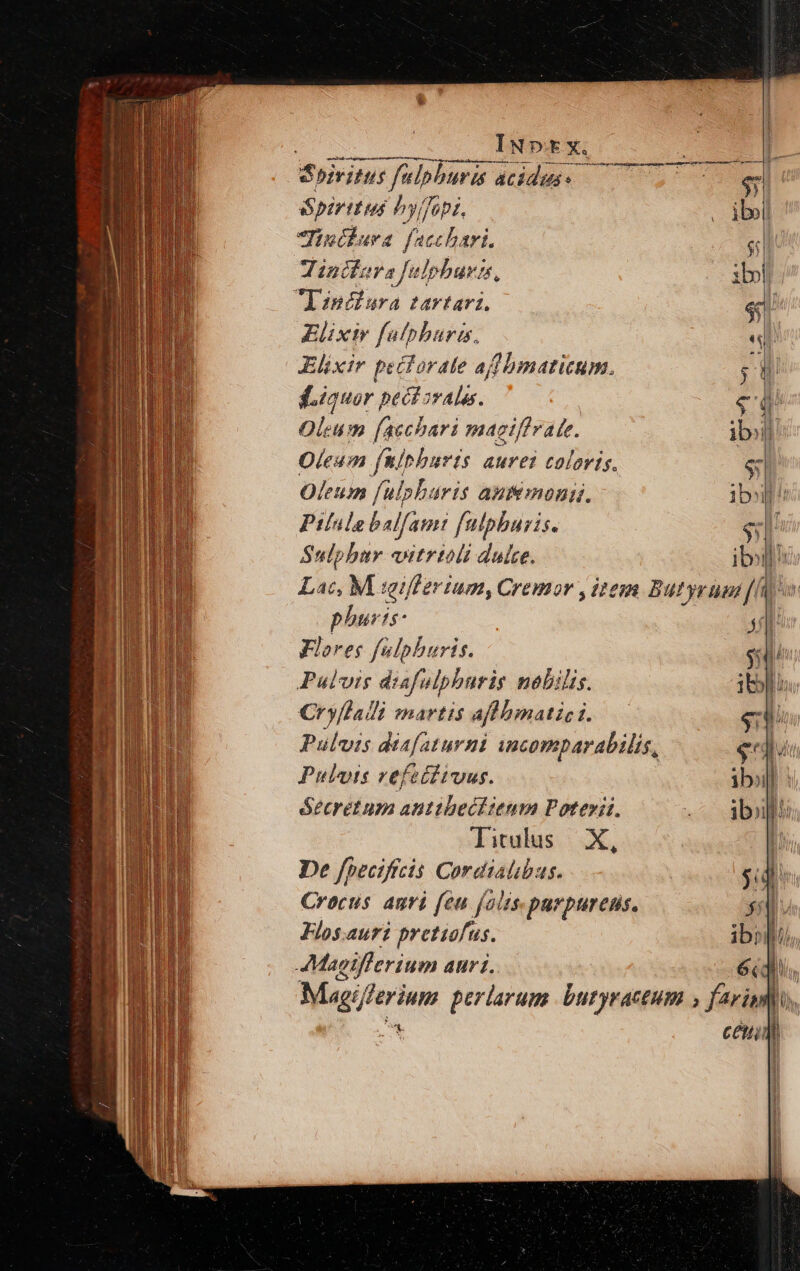 INDEX.
Spiritus ſulphuris acidus.
Spiritus hyſſopi. ibi
Tinctura ſacchari.
Tinctura ſulphuris, ibi
Tinctura tartari.
Elixir ſulphuris.
Elixir pectorale aſthmaticum.
Liquor pectoralis.
Oleum ſacchari magiſtrale. ibi
Oleum ſulphuris aurei coloris.
Oleum ſulphuris antimonii. ibi
Pilulæ balſami ſulphuris.
Sulphur vitrioli dulce. ibi
Lac, Magiſterium, Cremor, item Butyrum ſul
phuris.
Flores ſulphuris.
Pulvis diaſulphuris nobilis. ib
Cryſtalli martis aſthmatici.
Pulvis diaſaturni incomparabilis,
Pulvis refectivus. ibi
Secretum antihectieum Poterii. ibi
Titulus X,
De ſpecificis Cordialibus.
Crocus auri ſeu ſolis purpureus.
Flos auri pretioſus. ibi
Magiſterium auri. 6
Magiſterium perlarum butyraceum, farin